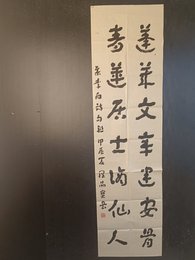 蓬莱文章建安骨
青莲居士谪仙人
李白诗句 甲辰夏